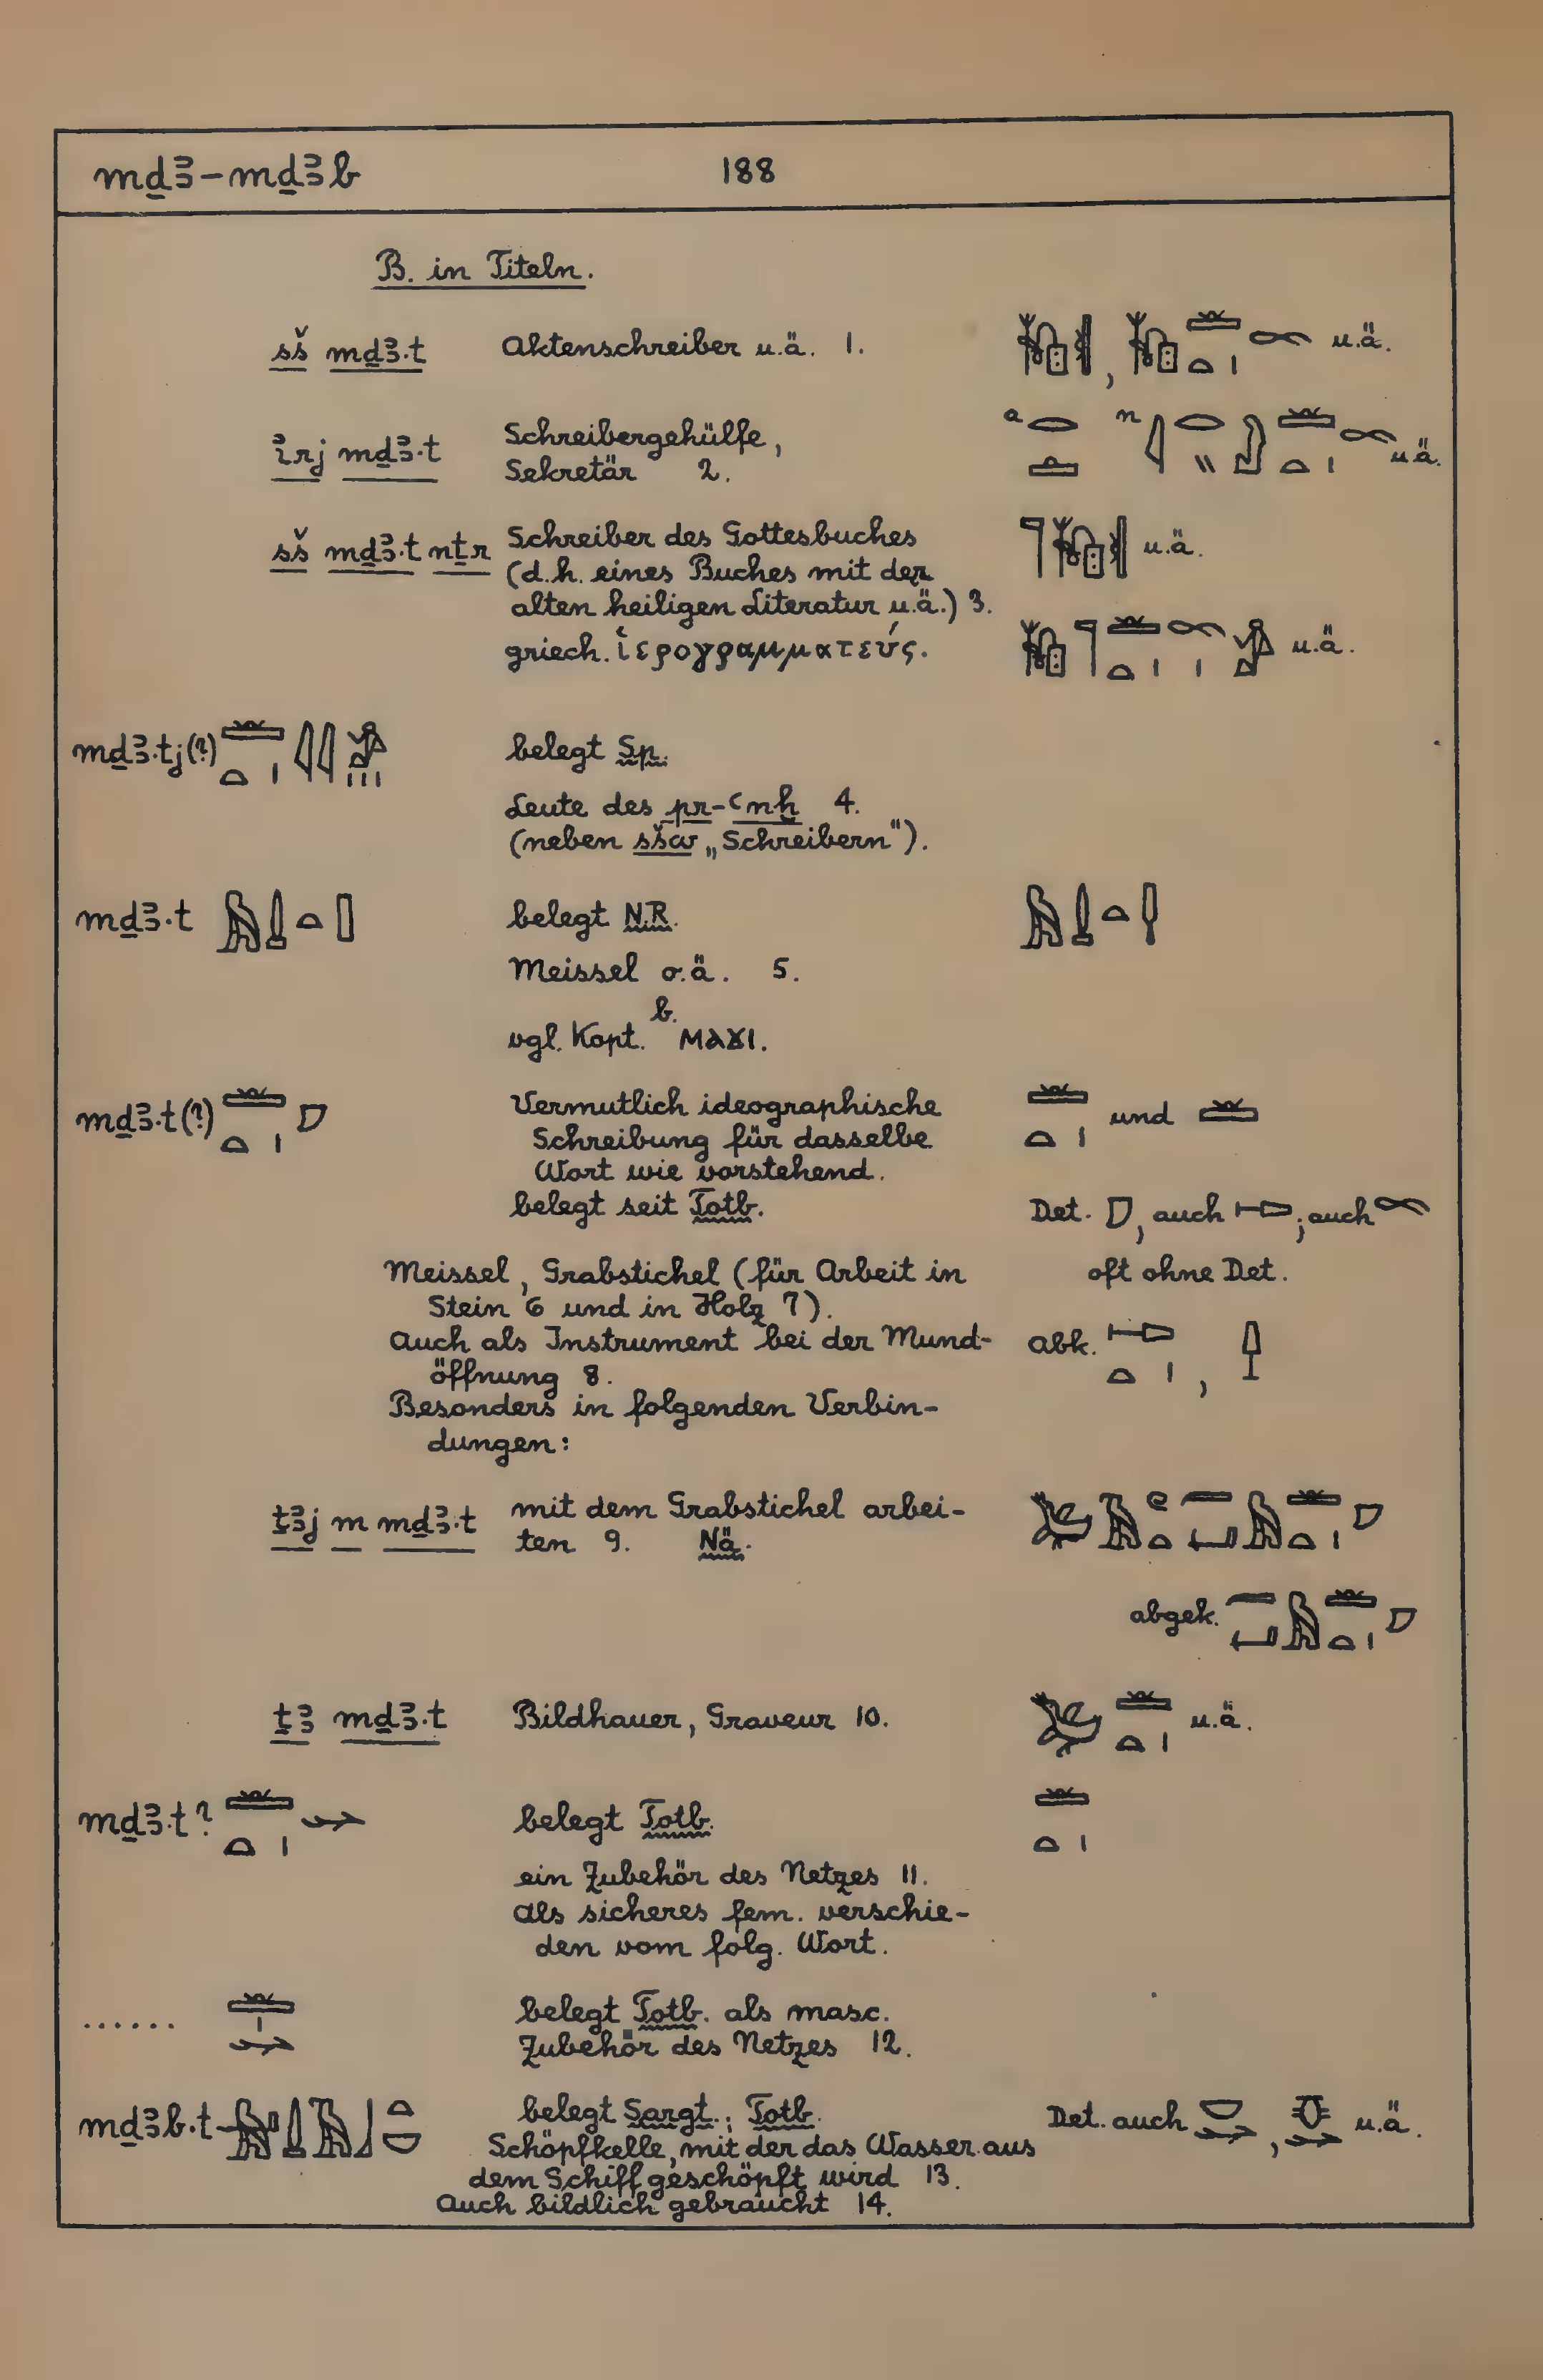 mḏꜣ - mḏꜣb 188
B. in Titeln.
sš mḏꜣ.t Aktenschreiber u.ä. 1. , u.ä.
ỉrj mḏꜣ.t Schreibergehülfe, a n
Sekretär 2. u.ä.
sš mḏꜣ.t nṯr Schreiber des Gottesbuches u.ä.
(d.h. eines Buches mit der
alten heiligen Literatur u.ä.) 3.
griech. ἱερογραμματεύς. u.ä.
mḏꜣ.tj(?) belegt Sp.
Leute des pr-ꜥnḫ 4.
(neben sšw „Schreibern").
mḏꜣ.t belegt N.R.
Meissel o.ä. 5.
vgl. Kopt. b. ⲙⲁϫⲓ.
mḏꜣ.t(?) Vermutlich ideographische und
Schreibung für dasselbe
Wort wie vorstehend.
belegt seit Totb. Det. , auch ; auch
Meissel, Grabstichel (für Arbeit in oft ohne Det.
Stein 6 und in Holz 7).
Auch als Instrument bei der Mund- abk. ,
öffnung 8.
Besonders in folgenden Verbin-
dungen:
ṯꜣj m mḏꜣ.t mit dem Grabstichel arbei-
ten 9. Nä.
abgek.
ṯꜣ mḏꜣ.t Bildhauer, Graveur 10. u.ä.
mḏꜣ.t? belegt Totb.
ein Zubehör des Netzes 11.
als sicheres fem. verschie-
den vom folg. Wort.
...... belegt Totb. als masc.
Zubehör des Netzes 12.
mḏꜣb.t belegt Sargt.; Totb. Det. auch , u.ä.
Schöpfkelle, mit der das Wasser aus
dem Schiff geschöpft wird 13.
Auch bildlich gebraucht 14.